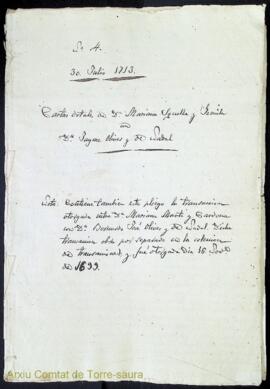 Nº 4.
30 Julio 1713.
Cartas dotales de Dª Mariana Squella y
con
Dª Olives y de Nadal.
Nota: Contiene tambien este pliego la transaccion
otorgada entre Dª Mariana Martí y Cardona
con Dª Bernardo José Olives y de Nadal. Dicha
transaccion obra por separado en la coleccion
de transacciones, y fué otorgada dia 16
de 1699.
Arxiu Comtat de Torre-saura